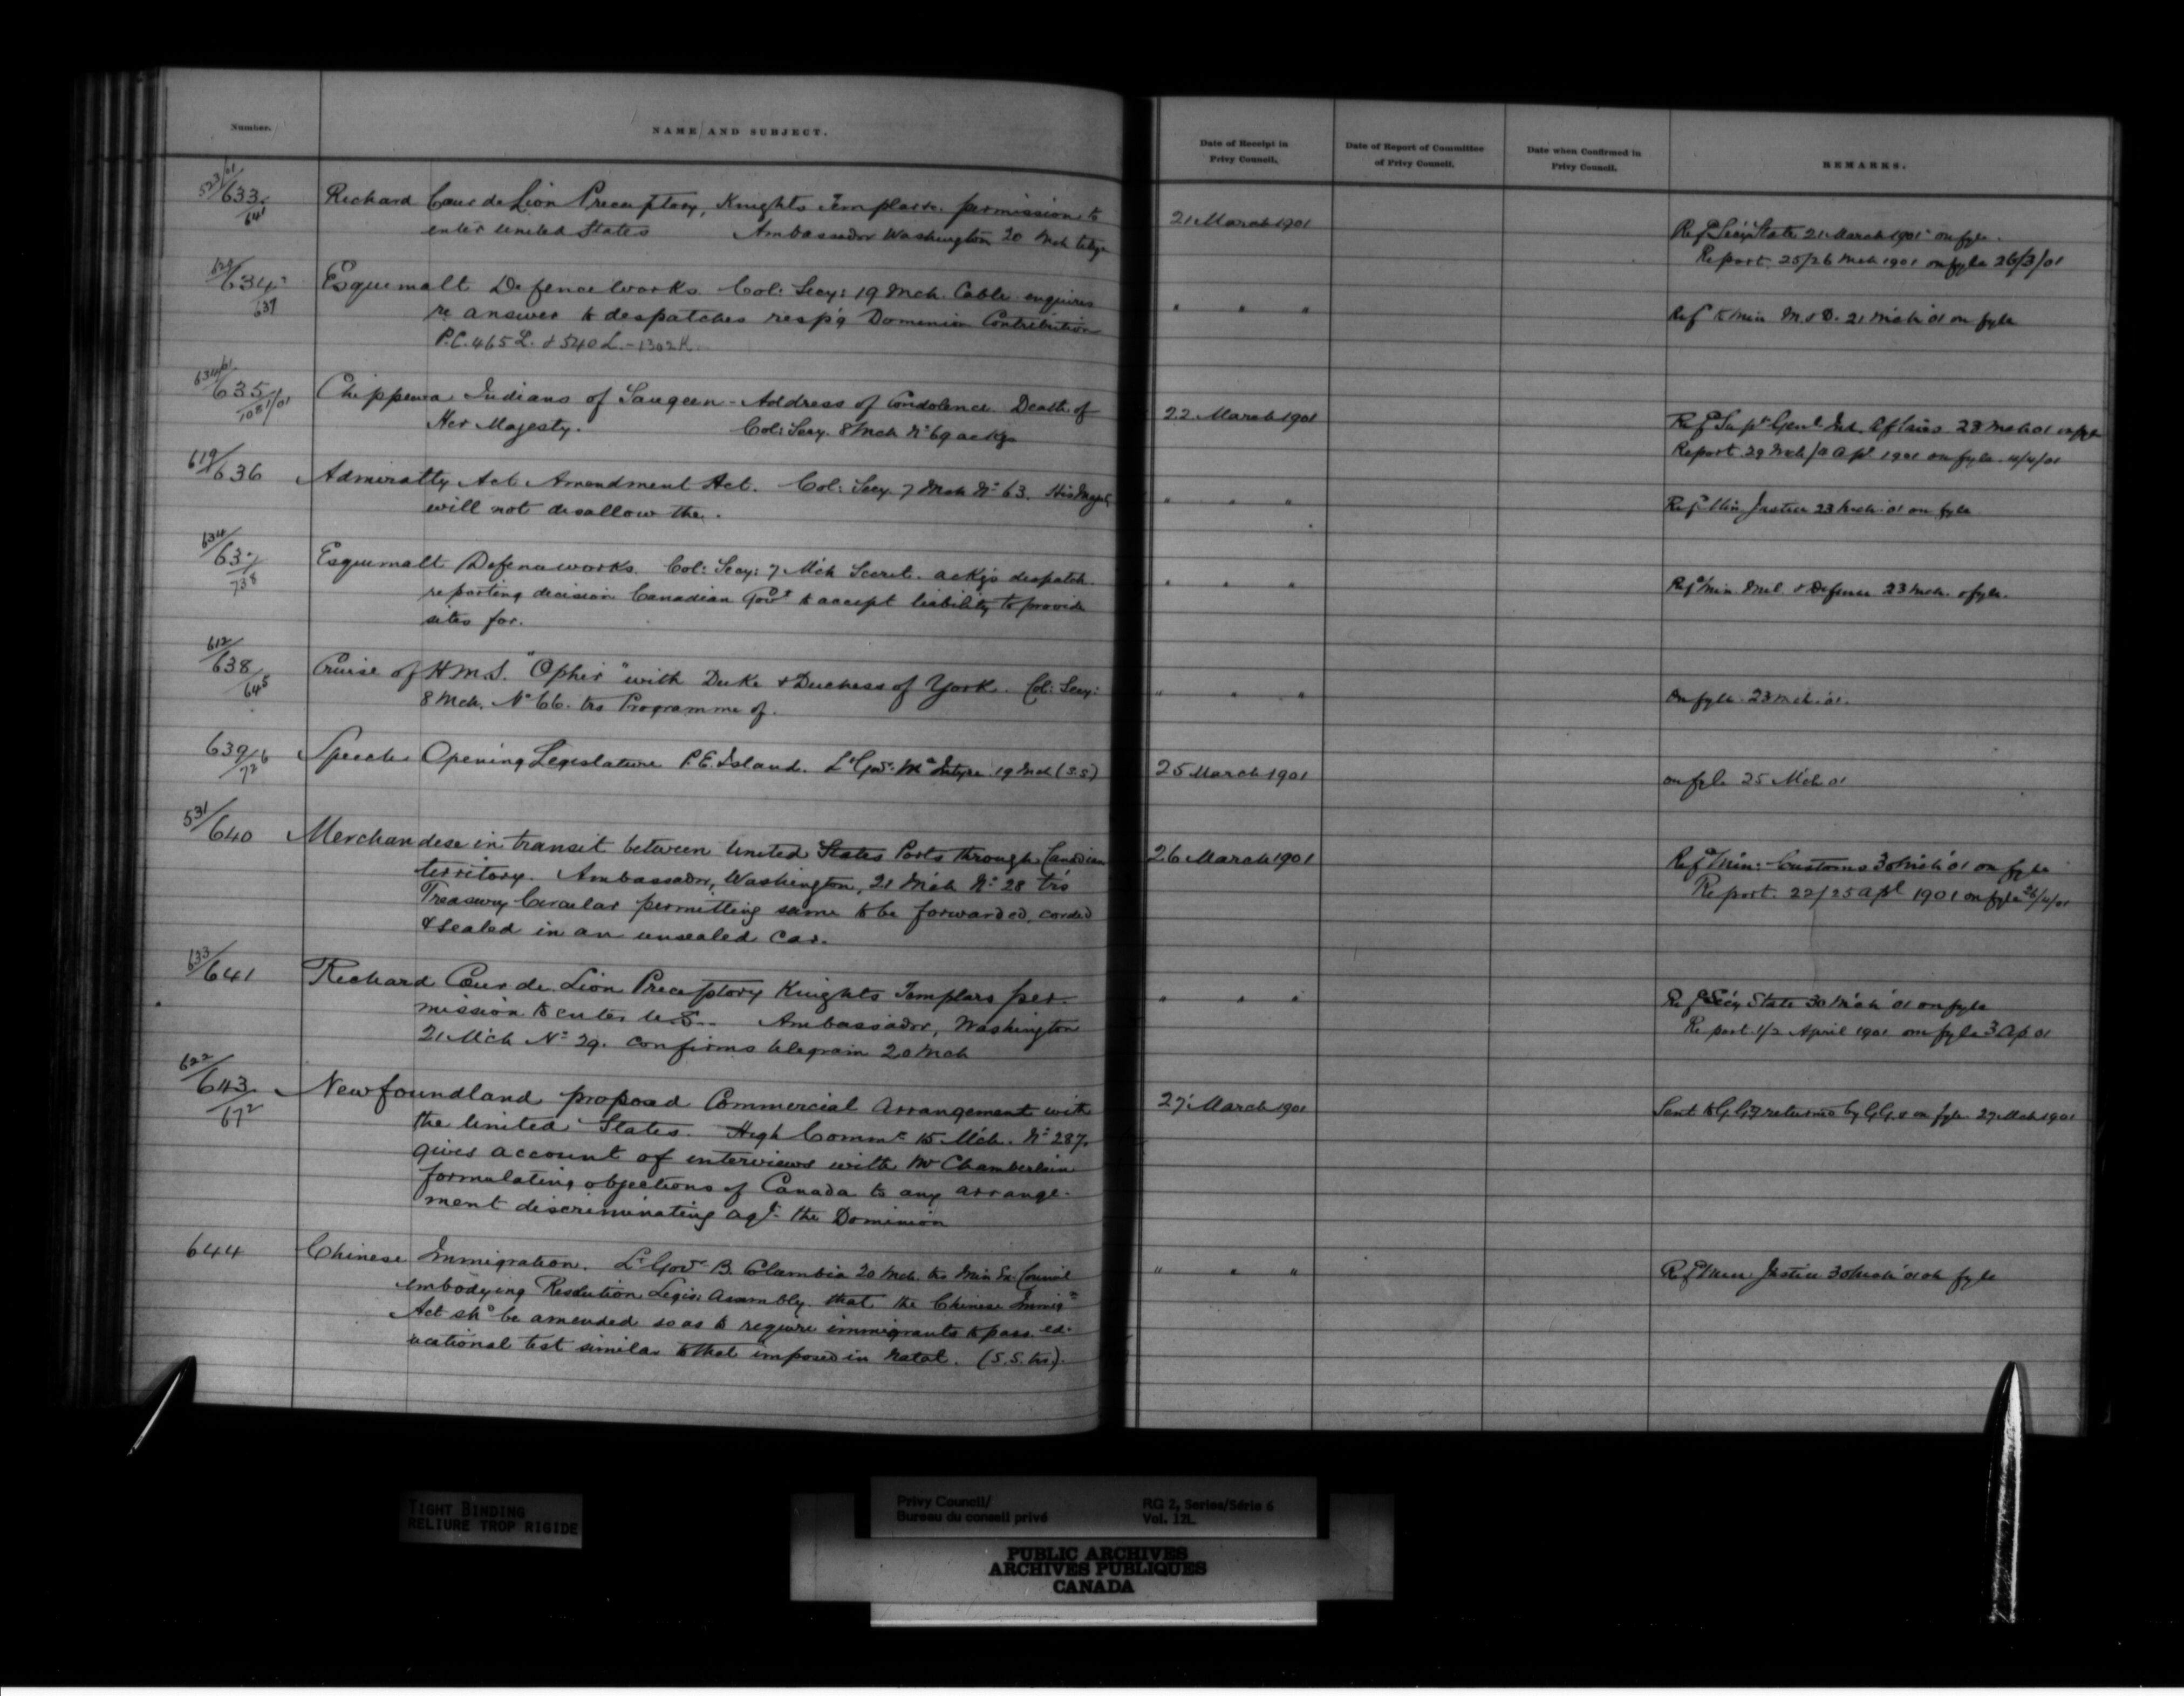 Number.
NAME AND SUBJECT.
Date of Receipt in
Privy Council.
Date of Report of Committee
of Privy Council.
Date when Confirmed in
Privy Council.
REMARKS.
523/01
633
641
Richard Cour de Lion Preceptory, Knights Templars. permission to
enter United States Ambassador Washington 20 Mch telgm
21 March 1901
Refd Secy State 21 March 1901 on fyle.
Report 25/26 Mch 1901 on fyle 26/3/01
634
637
Esquimalt Defence Works Col: Secy: 19 Mch. Cable enquires
re answer to despatches resp'g Dominion Contribution
P.C. 465 L. & 540 L. - 1302 K.
" " "
Ref to Min M. & D. 21 Mch 01 on fyle
634/01
635
1081/01
Chippewa Indians of Saugeen - Address of Condolence Death of
Her Majesty. Col: Secy. 8 Mch No 69 ackgs
22 March 1901
Refd Supt Genl Ind. Affairs 23 Mch 01 on fyle
Report 29 Mch/2 Apl 1901 on fyle 4/4/01
619/636
Admiralty Act Amendment Act. Col: Secy. 7 Mch No 63. His Majesty
will not disallow the.
" " "
Refd Min Justice 23 Mch 01 on fyle
634/
637
738
Esquimalt Defence works. Col: Secy: 7 Mch Secret. ackgs despatch
reporting decision Canadian Govt to accept liability to provide
sites for.
" " "
Refd Min Mil & Defence 23 Mch. o fyle.
612/
638
645
Cruise of H.M.S. "Ophir" with Duke & Duchess of York. Col: Secy:
8 Mch. No 66. trs Programme of.
" " "
On fyle 23 Mch 01.
639
726
Speech Opening Legislature P.E. Island. Lt Govr McIntyre 19 Mch (S.S)
25 March 1901
on fyle 25 Mch 01
531/640
Merchandise in transit between United States Ports through Canadian
territory. Ambassador, Washington, 21 Mch No 28 trs
Treasury Circular permitting same to be forwarded, corded
& sealed in an unsealed car.
26 March 1901
Refd Min: Customs 30 Mch 01 on fyle
Report 22/25 Apl 1901 on fyle 26/4/01
633/641
Richard Cœur de Lion Preceptory Knights Templars per-
mission to enter U.S. Ambassador, Washington
21 Mch No 29. confirms telegram 20 Mch
" " "
Refd Secy State 30 Mch 01 on fyle
Report 1/2 April 1901 on fyle 3 Ap 01
622/
643
672
Newfoundland proposed Commercial Arrangement with
the United States. High Commr 15 Mch. No 287.
gives account of interviews with Mr Chamberlain
formulating objections of Canada to any arrange-
ment discriminating agt the Dominion
27 March 1901
Sent to G.G. returned by G.G. & on fyle 27 Mch 1901
644
Chinese Immigration. Lt Govr B. Clumbia 20 Mch. trs Min Ex. Council
embodying Resolution Legis: Assembly that the Chinese Immign
Act shd be amended so as to require immigrants to pass ed-
ucational test similar to that imposed in Natal. (S.S. trs).
" " "
Refd Min Justice 30 Mch 01 on fyle
TIGHT BINDING
RELIURE TROP RIGIDE
Privy Council/
Bureau du conseil privé
RG 2, Series/Série 6
Vol. 12L
PUBLIC ARCHIVES
ARCHIVES PUBLIQUES
CANADA